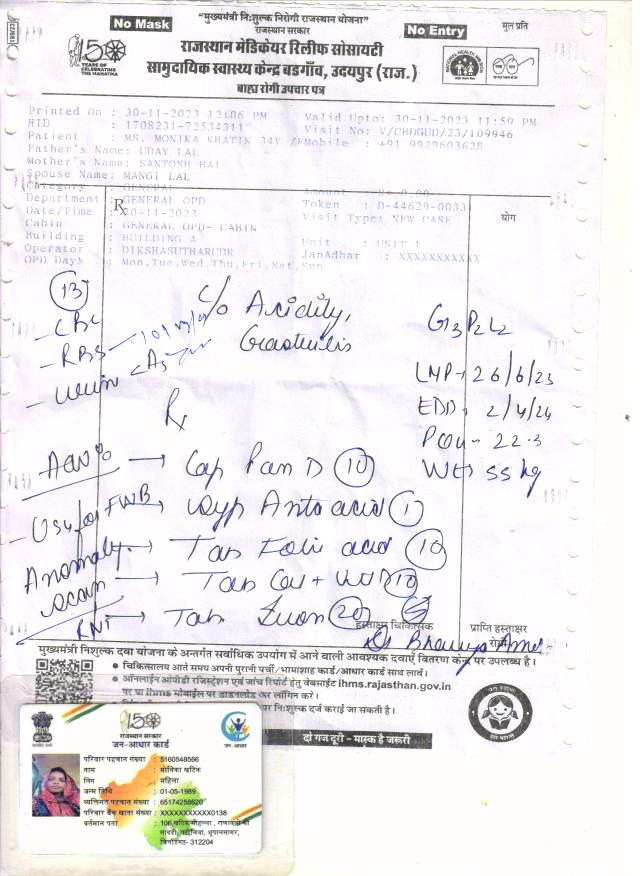 No Mask
"मुख्यमंत्री निःशुल्क निरोगी राजस्थान योजना"
राजस्थान सरकार
No Entry
मुल प्रति
150 YEARS OF CELEBRATING THE MAHATMA
राजस्थान मेडिकेयर रिलीफ सोसायटी
सामुदायिक स्वास्थ्य केन्द्र बड़गाँव, उदयपुर (राज.)
बाह्य रोगी उपचार पत्र
Printed On : 30-11-2023 12:06 PM Valid Upto: 30-11-2023 11:59 PM
HID : 1708231-72534311 Visit No: V/CBDGUD/23/109946
Patient : MS. MONIKA KHATIK 34Y /F Mobile : +91 9929603628
Father's Name: UDAY LAL
Mother's Name: SANTOSH BAI
Spouse Name: MANGI LAL
Category : GENERAL Amount : Rs 0.00
Department : GENERAL OPD Token : D-44629-0033
Date/Time : 30-11-2023 Visit Type: NEW CASE
Cabin : GENERAL OPD- CABIN
Building : BUILDING A Unit : UNIT 1
Operator : DIKSHASUTHARUDR JanAadhar : XXXXXXXXXXX
OPD Days : Mon,Tue,Wed,Thu,Fri,Sat,Sun
Rx
योग
13
c/o Acidity,
- CBC
G3P2L2
- RBS - 101
- urine
LMP → 26/6/23
Rx
EDD → 2/4/24
POG - 22.3
→ Cap Pan D 10
Wt → 55 kg
- USG for FWB → Syp Antacid 1
Anomaly → Tab Folic acid 10
scan → Tab Cal + Vit D 10
→ Tab 20
हस्ताक्षर चिकित्सक
प्राप्ति हस्ताक्षर
मुख्यमंत्री निशुल्क दवा योजना के अन्तर्गत सर्वाधिक उपयोग में आने वाली आवश्यक दवाएं वितरण केन्द्र पर उपलब्ध है।
• चिकित्सालय आते समय अपनी पुरानी पर्ची/भामाशाह कार्ड/आधार कार्ड साथ लावें।
• ऑनलाईन ओपीडी रजिस्ट्रेशन एवं जांच रिपोर्ट हेतु वेबसाईट ihms.rajasthan.gov.in
पर या ihms मोबाईल पर डाउनलोड कर लॉगिन करें।
पर निःशुल्क दर्ज कराई जा सकती है।
दो गज दूरी - मास्क है जरूरी
150
राजस्थान सरकार
जन-आधार कार्ड
जन-आधार
परिवार पहचान संख्या : 5160548566
नाम : मोनिका खटिक
लिंग : महिला
जन्म तिथि : 01-05-1989
व्यक्तिगत पहचान संख्या : 65174258620
परिवार बैंक खाता संख्या : XXXXXXXXXXX0138
वर्तमान पता : 106,
चित्तौड़गढ़- 312204